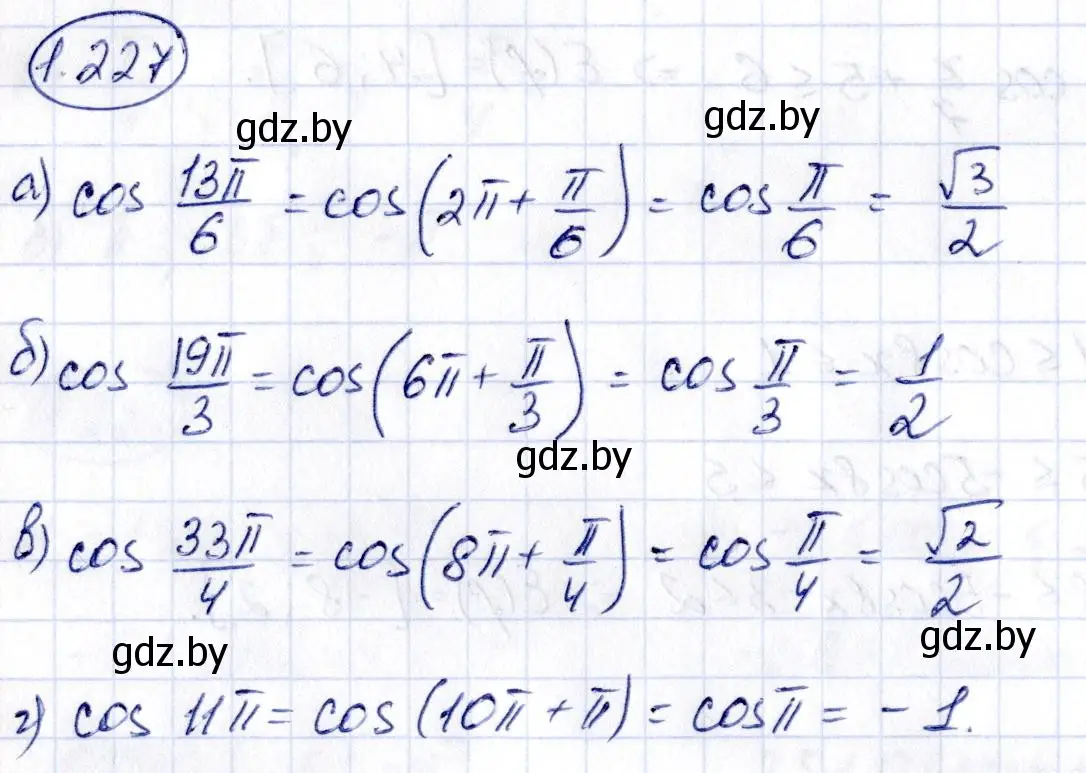 1.227
gdz.by
gdz.by
а) cos 13π/6 = cos(2π + π/6) = cos π/6 = √3/2
б) cos 19π/3 = cos(6π + π/3) = cos π/3 = 1/2
gdz.by
в) cos 33π/4 = cos(8π + π/4) = cos π/4 = √2/2
gdz.by
gdz.by
г) cos 11π = cos(10π + π) = cos π = -1.